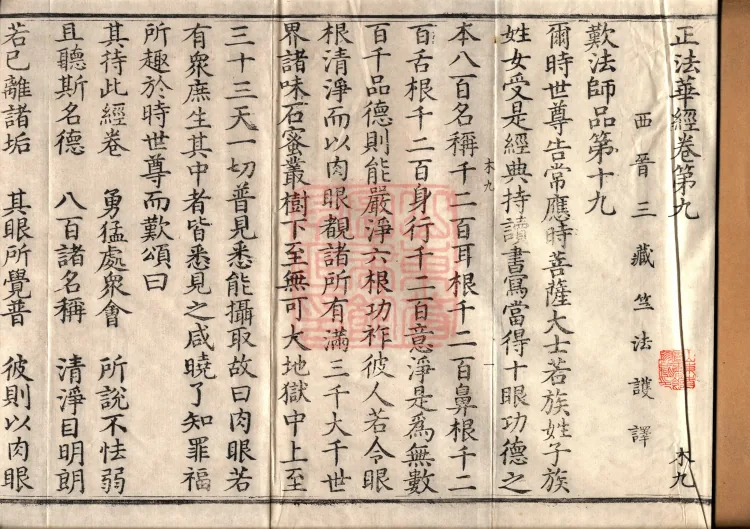 正法華經卷第九 木九
西晉三藏竺法護譯
歎法師品第十九
爾時世尊告常應時菩薩大士若族姓子族
姓女受是經典持讀書寫當得十眼功德之
木九
本八百名稱千二百耳根千二百鼻根千二
百舌根千二百身行千二百意淨是為無數
百千品德則能嚴淨六根功祚彼人若令眼
根清淨而以肉眼觀諸所有滿三千大千世
界諸味石蜜叢樹下至無可大地獄中上至
三十三天一切普見悉能攝取故曰肉眼若
有眾庶生其中者皆悉見之咸曉了知罪福
所趣於時世尊而歎頌曰
其待此經卷 勇猛處眾會 所說不怯弱
且聽斯名德 八百諸名稱 清淨目明朗
若已離諸垢 其眼所覺普 彼則以肉眼